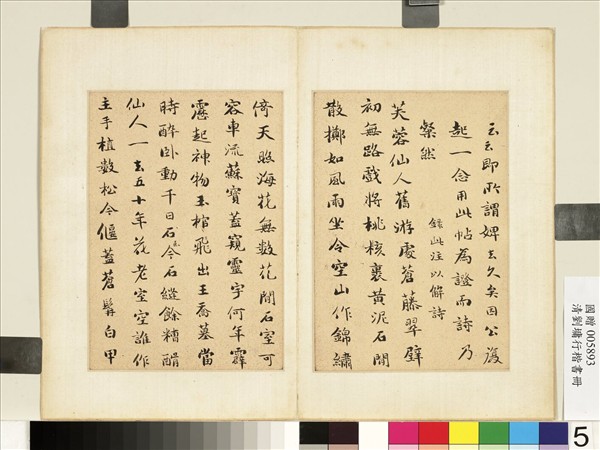 云云即所謂婢去久矣因公復
起一念用此帖為證而詩乃
粲然
錄此注以解詩
芙蓉仙人舊游處蒼藤翠壁
初無路戲將桃核裹黃泥石間
散擲如風雨坐令空山作錦繡
倚天照海花無數花間石室可
容車流蘇寶蓋窺靈宇何年霹
靂起神物玉棺飛出王喬墓當
時醉卧動千日石至今石縫餘糟醑
仙人一去五十年花老室空誰作
主手植數松今偃蓋蒼髯白甲
國贈 005893
清劉墉行楷書冊
5